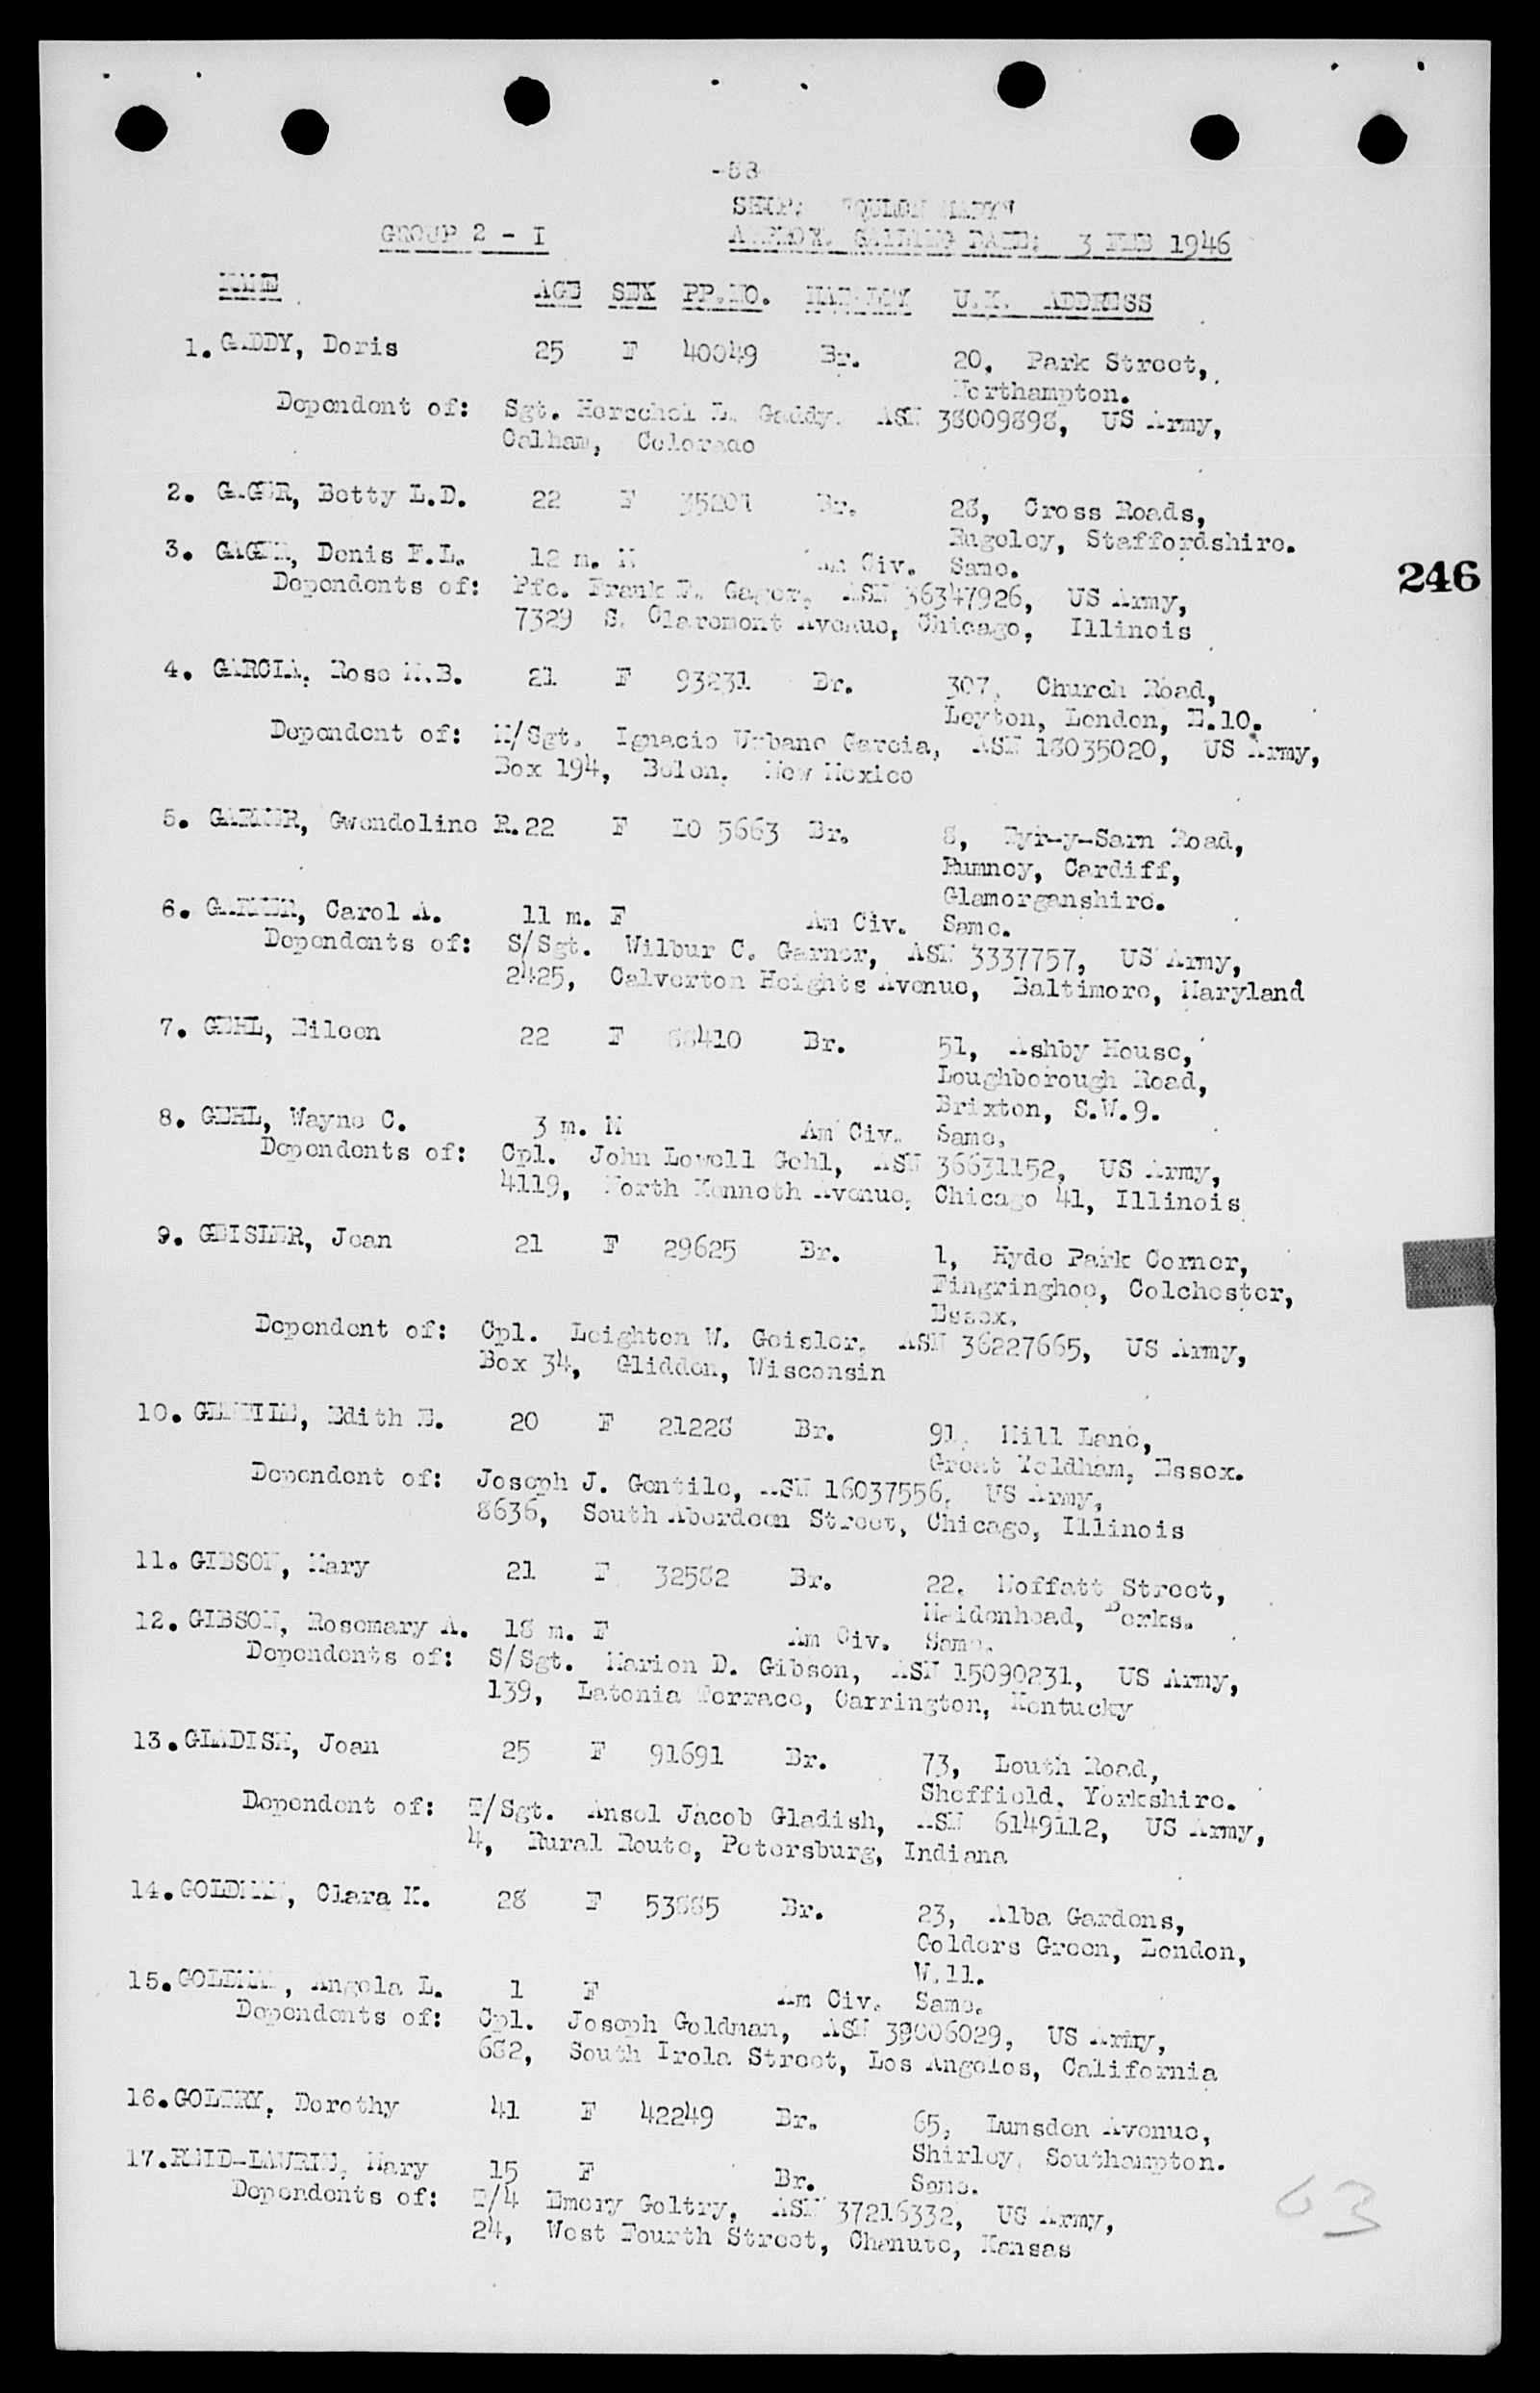 GROUP 2 - I
SHIP: "QUEEN MARY"
APPROX. SAILING DATE: 3 FEB 1946
NAME AGE SEX PP.NO. U.K. ADDRESS
1. GADDY, Doris 25 F 40049 Br. 20, Park Street,
Northampton.
Dependent of: Sgt. Herschel L. Gaddy, ASN 38009898, US Army,
Calhan, Colorado
2. GAGER, Betty L.D. 22 F Br. 28, Cross Roads,
Rugeley, Staffordshire.
3. GAGER, Denis F.L. 12 m. M Am Civ. Same.
246
Dependents of: Pfc. Frank Gager, ASN 36347926, US Army,
7329 S. Claremont Avenue, Chicago, Illinois
4. GARCIA, Rose M.B. 21 F 93231 Br. 307, Church Road,
Leyton, London, E.10.
Dependent of: M/Sgt. Ignacio Urbano Garcia, ASN 18035020, US Army,
Box 194, Belen, New Mexico
5. GARNER, Gwendoline R. 22 F IO 5663 Br. 8, Tyr-y-Sarn Road,
Rumney, Cardiff,
Glamorganshire.
6. GARNER, Carol A. 11 m. F Am Civ. Same.
Dependents of: S/Sgt. Wilbur C. Garner, ASN 3337757, US Army,
2425, Calverton Heights Avenue, Baltimore, Maryland
7. GEHL, Eileen 22 F 88410 Br. 51, Ashby House,
Loughborough Road,
Brixton, S.W.9.
8. GEHL, Wayne C. 3 m. M Am Civ. Same.
Dependents of: Cpl. John Lowell Gehl, ASN 36631152, US Army,
4119, North Kenneth Avenue, Chicago 41, Illinois
9. GEISLER, Jean 21 F 29625 Br. 1, Hyde Park Corner,
Fingringhoe, Colchester,
Essex.
Dependent of: Cpl. Leighton W. Geisler, ASN 36227665, US Army,
Box 34, Glidden, Wisconsin
10. GENTILE, Edith E. 20 F 21228 Br. 91, Mill Lane,
Great Yeldham, Essex.
Dependent of: Joseph J. Gentile, ASN 16037556, US Army,
8636, South Aberdeen Street, Chicago, Illinois
11. GIBSON, Mary 21 F 32582 Br. 22, Moffatt Street,
Maidenhead, Berks.
12. GIBSON, Rosemary A. 18 m. F Am Civ. Same.
Dependents of: S/Sgt. Marion D. Gibson, ASN 15090231, US Army,
139, Latonia Terrace, Carrington, Kentucky
13. GLADISH, Joan 25 F 91691 Br. 73, Louth Road,
Sheffield, Yorkshire.
Dependent of: T/Sgt. Ansel Jacob Gladish, ASN 6149112, US Army,
4, Rural Route, Petersburg, Indiana
14. GOLDMAN, Clara K. 28 F 53885 Br. 23, Alba Gardens,
Golders Green, London,
W.11.
15. GOLDMAN, Angela L. 1 F Am Civ. Same.
Dependents of: Cpl. Joseph Goldman, ASN 39006029, US Army,
682, South Irola Street, Los Angeles, California
16. GOLTRY, Dorothy 41 F 42249 Br. 65, Lumsden Avenue,
Shirley, Southampton.
17. REID-LAURIE, Mary 15 F Br. Same.
Dependents of: T/4 Emery Goltry, ASN 37216332, US Army,
24, West Fourth Street, Chanute, Kansas
63